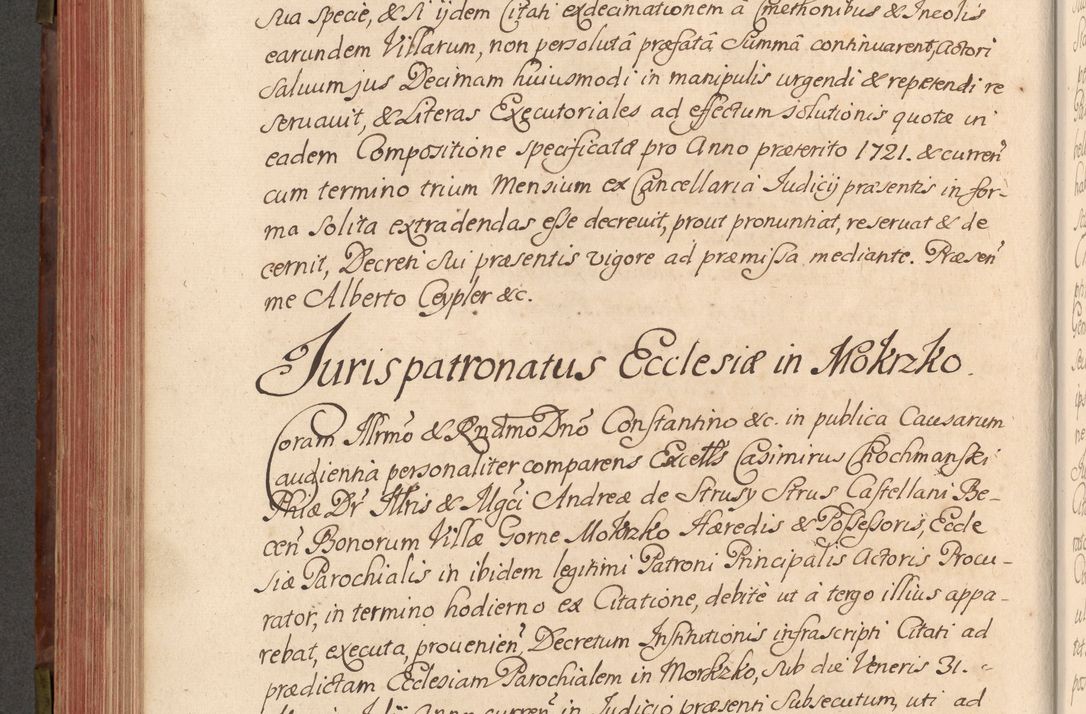 sua specie, & si ijdem Citati exdecimationem â Cmethonibus & Incolis
earundem Villarum, non persolutâ præfatâ Summâ continuarent, Actori
salvum jus Decimam huiusmodi in manipulis urgendi & repetendi re
servavit, & Literas Executoriales ad effectum solutionis quotæ in
eadem Compositione specificatæ pro Anno præterito 1721. & curren̄
cum termino trium Mensium ex Cancellaria Iudicij præsentis in for-
ma solita extradendas esse decrevit, prout pronuntiat, reservat & de
cernit, Decreti sui præsentis vigore ad præmissa mediante. Præsen̄
me Alberto Ceypler &c.
Juris patronatus Ecclesiæ in Mokrzko.
Coram Illrmo & Rndmo Dno Constantino &c. in publica Causarum
audientia personaliter comparens Excells Casimirus Chochmanski
Phiæ Dr Illris & Mgci Andreæ de Strusy Strus Castellani Be-
cen̄ Bonorum Villæ Gorne Mokrzko Hæredis & Possessoris, Eccle
siæ Parochialis in ibidem legitimi Patroni Principalis Actoris Procu-
rator, in termino hodierno ex Citatione, debitè ut à tergo illius appa-
rebat, executa, provenien̄, Decretum Institutionis infrascripti Citati ad
prædictam Ecclesiam Parochialem in Morkzko, sub die Veneris 31.
Anno curren̄ in Iudicio præsenti subsecutum, uti ad